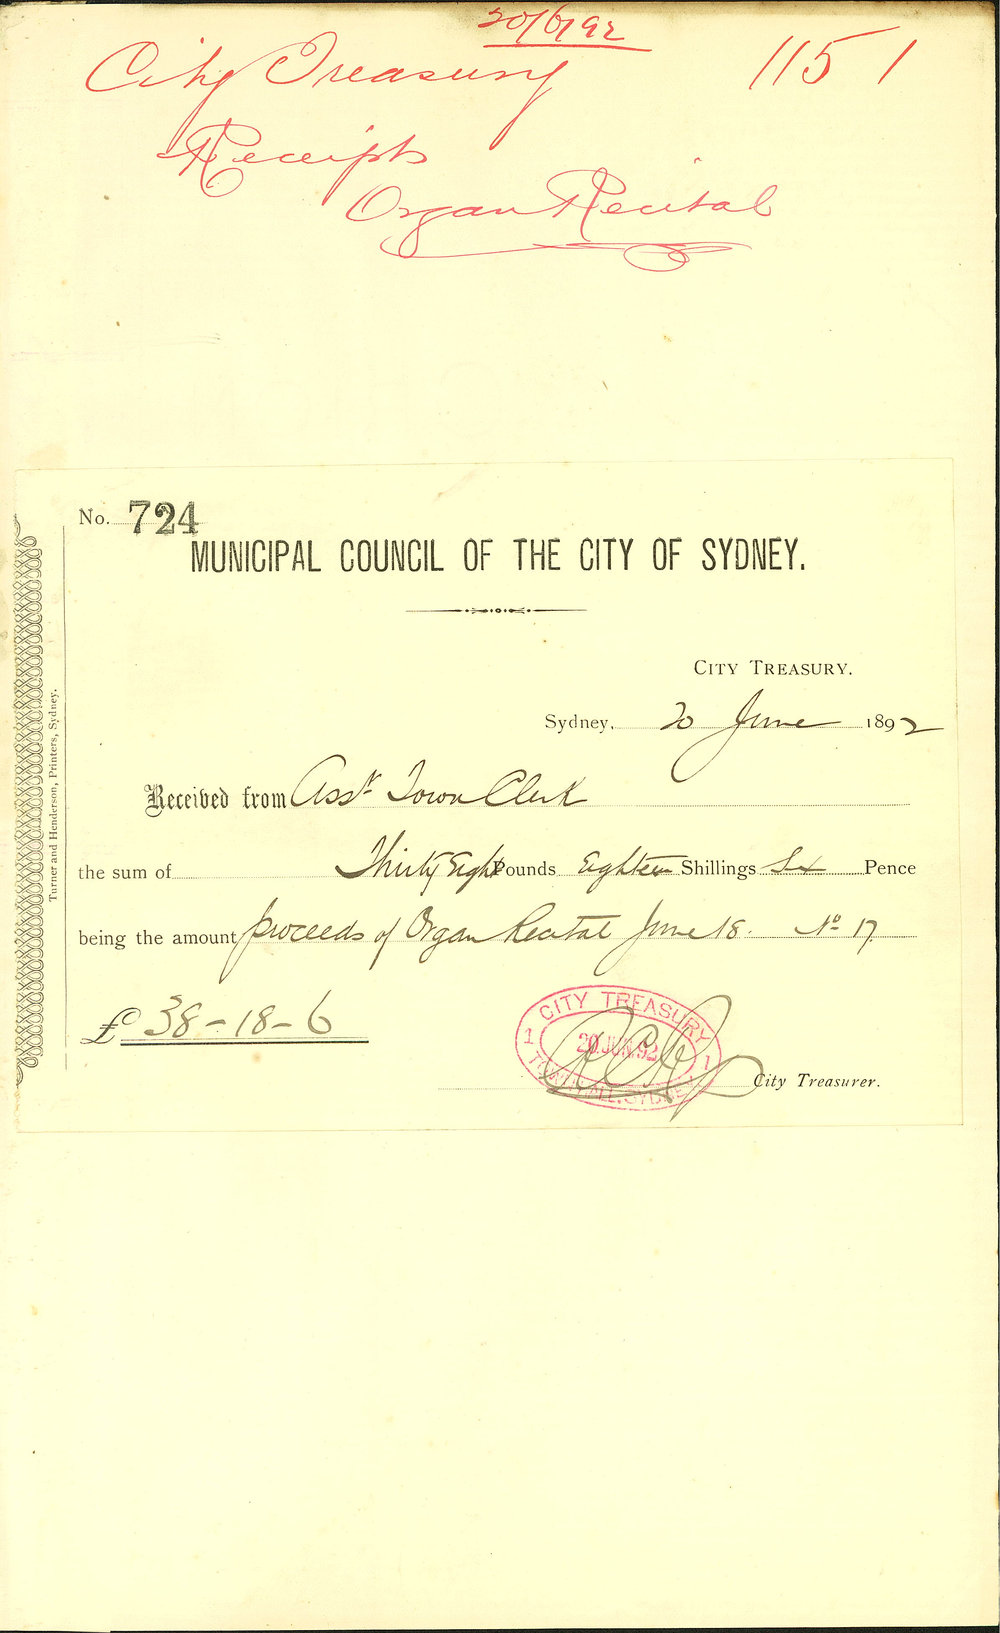 20/6/92
City Treasury 1151
Receipts
Organ Recital
No. 724
MUNICIPAL COUNCIL OF THE CITY OF SYDNEY.
CITY TREASURY.
Sydney, 20 June 1892
Received from Asst Town Clerk
the sum of Thirty Eight Pounds Eighteen Shillings Six Pence
being the amount proceeds of Organ Recital June 18. No 17
£ 38-18-6
CITY TREASURY
1 20 JUN. 92 1
TOWN HALL, SYDNEY
City Treasurer.
Turner and Henderson, Printers, Sydney.